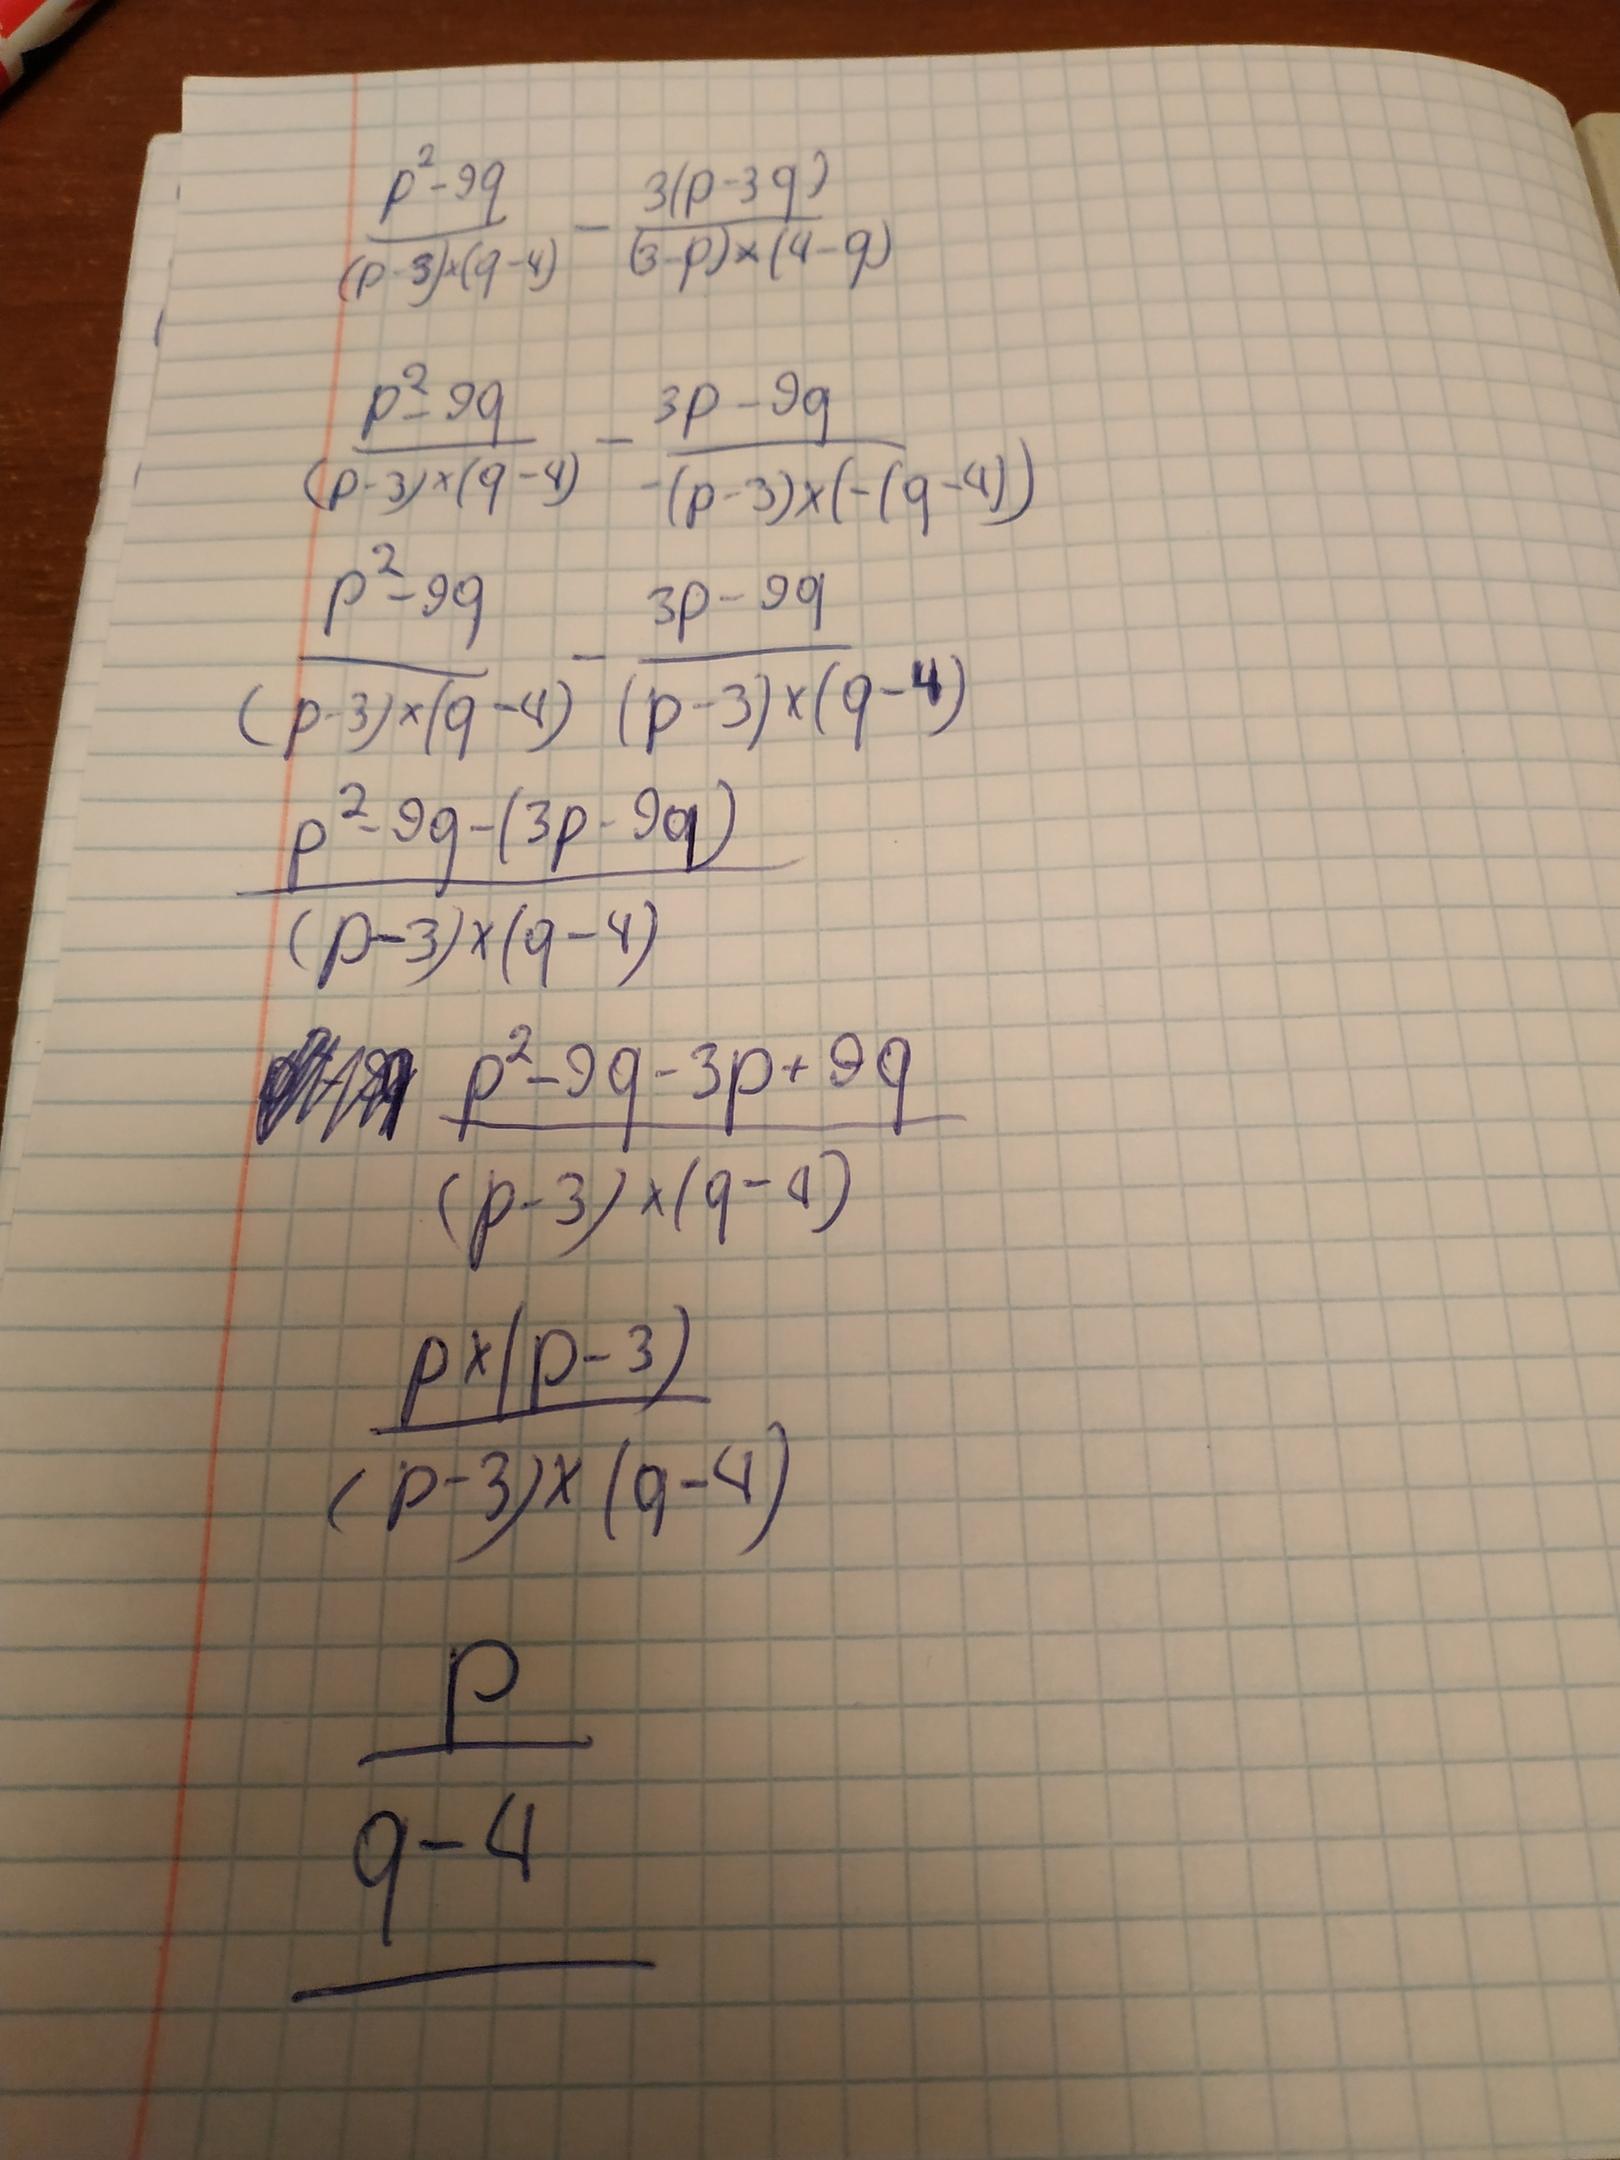 p²-9q / (p-3)×(q-4) - 3(p-3q) / (3-p)×(4-q)
p²-9q / (p-3)×(q-4) - 3p-9q / -(p-3)×(-(q-4))
p²-9q / (p-3)×(q-4) - 3p-9q / (p-3)×(q-4)
p²-9q-(3p-9q)
(p-3)×(q-4)
p²-9q-3p+9q
(p-3)×(q-4)
p×(p-3)
(p-3)×(q-4)
p
q-4